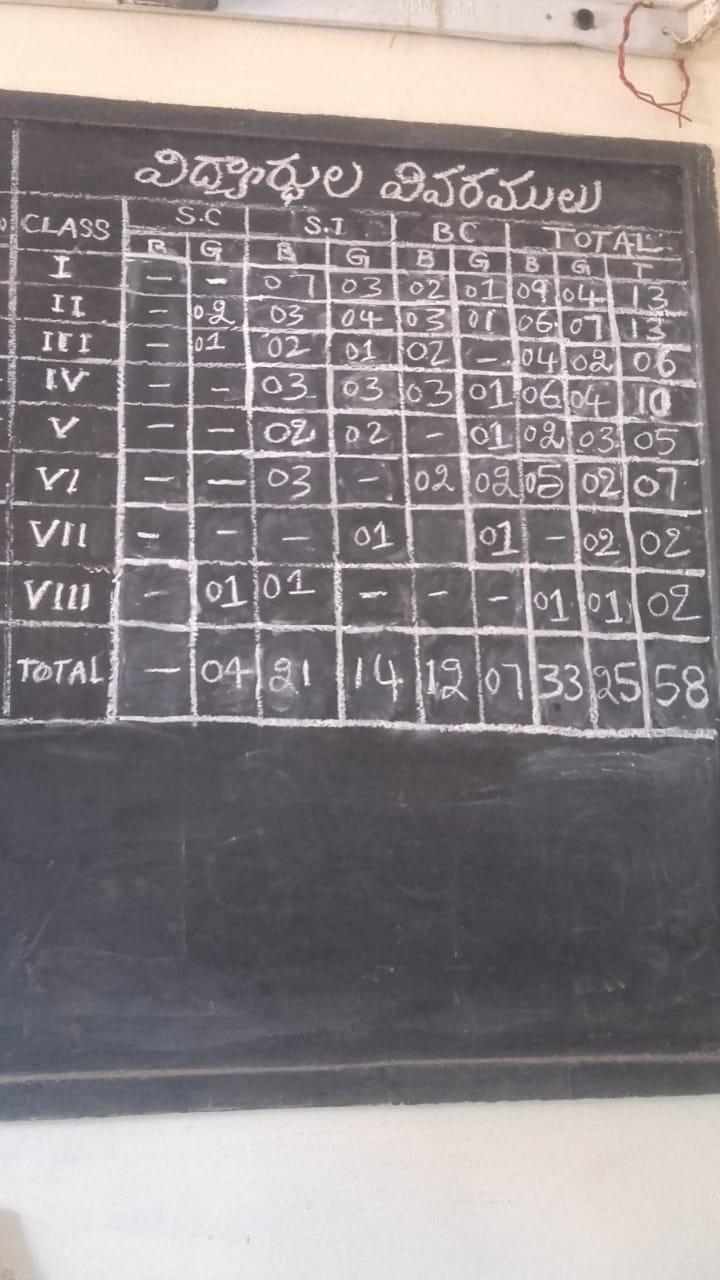 విద్యార్థుల వివరములు
CLASS S.C S.T BC TOTAL
B G B G B G B G T
I - - 07 03 02 01 09 04 13
II - 02 03 04 03 01 06 07 13
III - 01 02 01 02 - 04 02 06
IV - - 03 03 03 01 06 04 10
V - - 02 02 - 01 02 03 05
VI - - 03 - 02 02 05 02 07
VII - - - 01 01 - 02 02
VIII - 01 01 - - - 01 01 02
TOTAL - 04 21 14 12 07 33 25 58